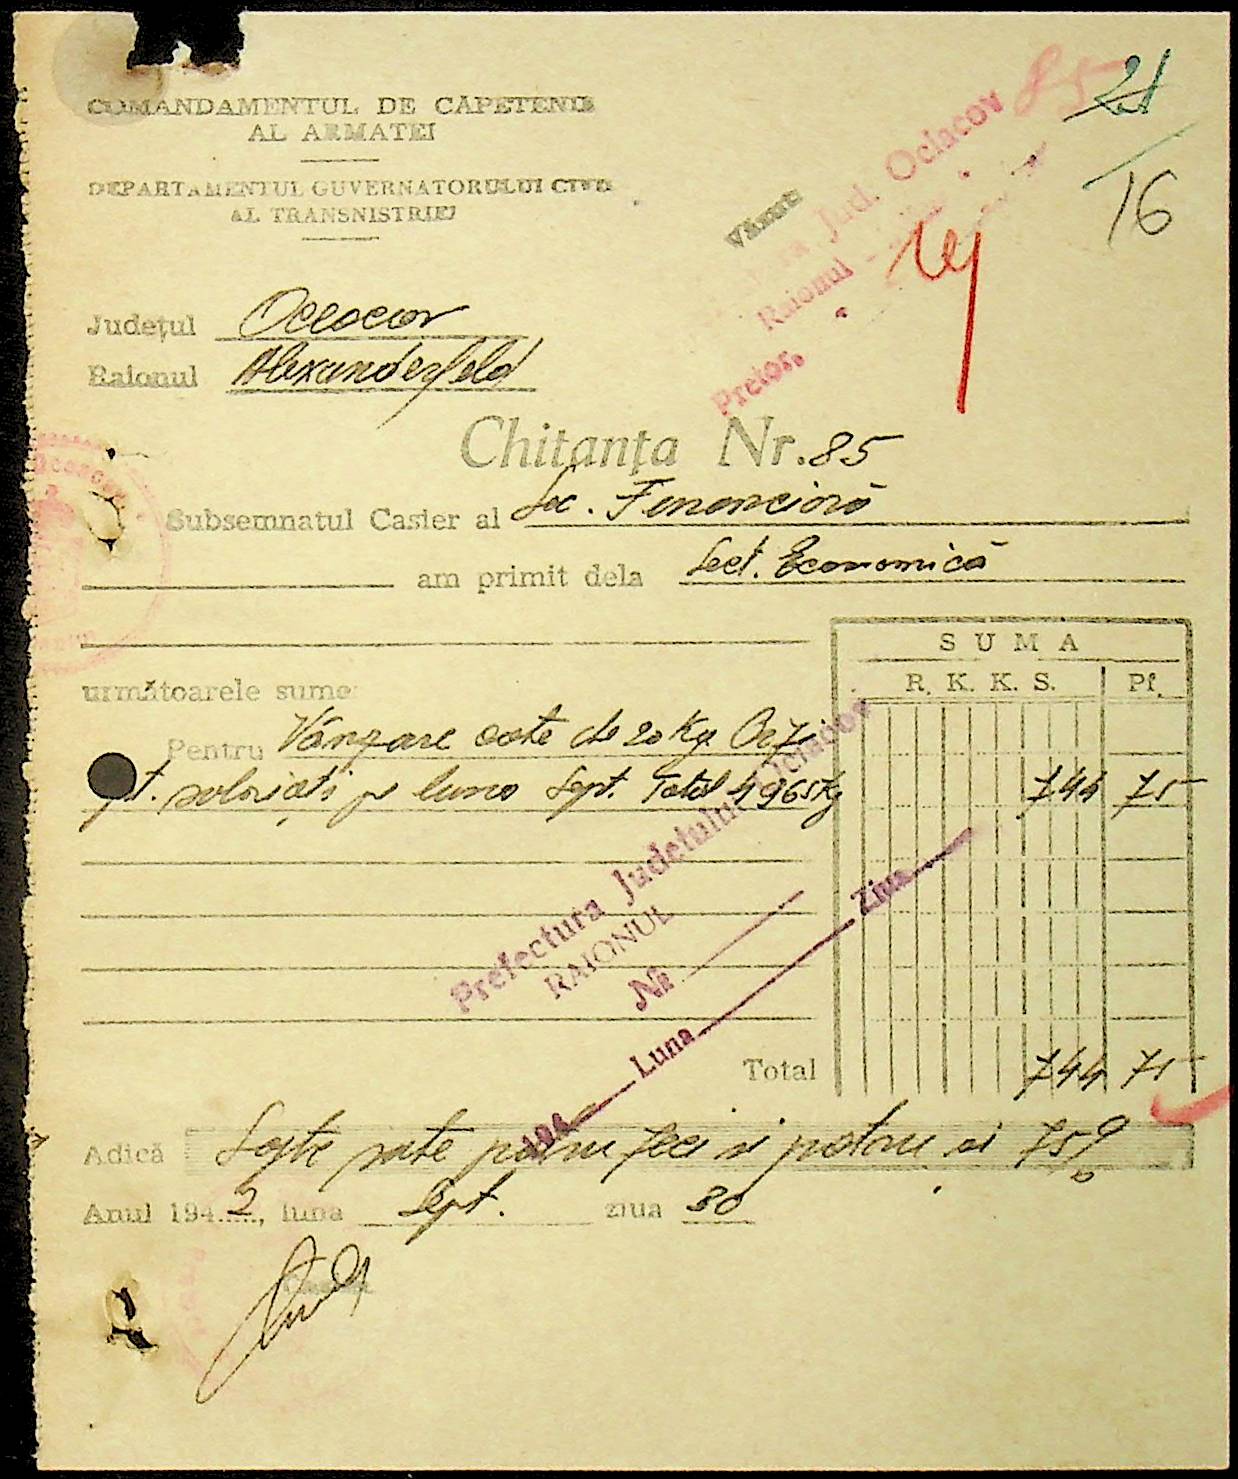 COMANDAMENTUL DE CAPETENIE
AL ARMATEI
DEPARTAMENTUL GUVERNATORULUI CIVIL
AL TRANSNISTRIEI
85
21
16
Văzut
Jud. Oceacov
Raionul
Pretor,
Județul Oceacov
Raionul Alexanderfeld
Chitanța Nr. 85
Subsemnatul Casier al Sec. Financiară
am primit dela Sect. Economică
următoarele sume
Pentru Vânzare cote de 20 Kg Orz
pt. salariați pe luna Sept. Total 4965 Kg
SUMA
R. K. K. S. Pf.
744 75
Prefectura Județului Oceacov
RAIONUL
Nr.
194 Luna Ziua
Total 744 75
Adică Șapte sute patru zeci și patru și 75
Anul 1942, luna Sept. ziua 30